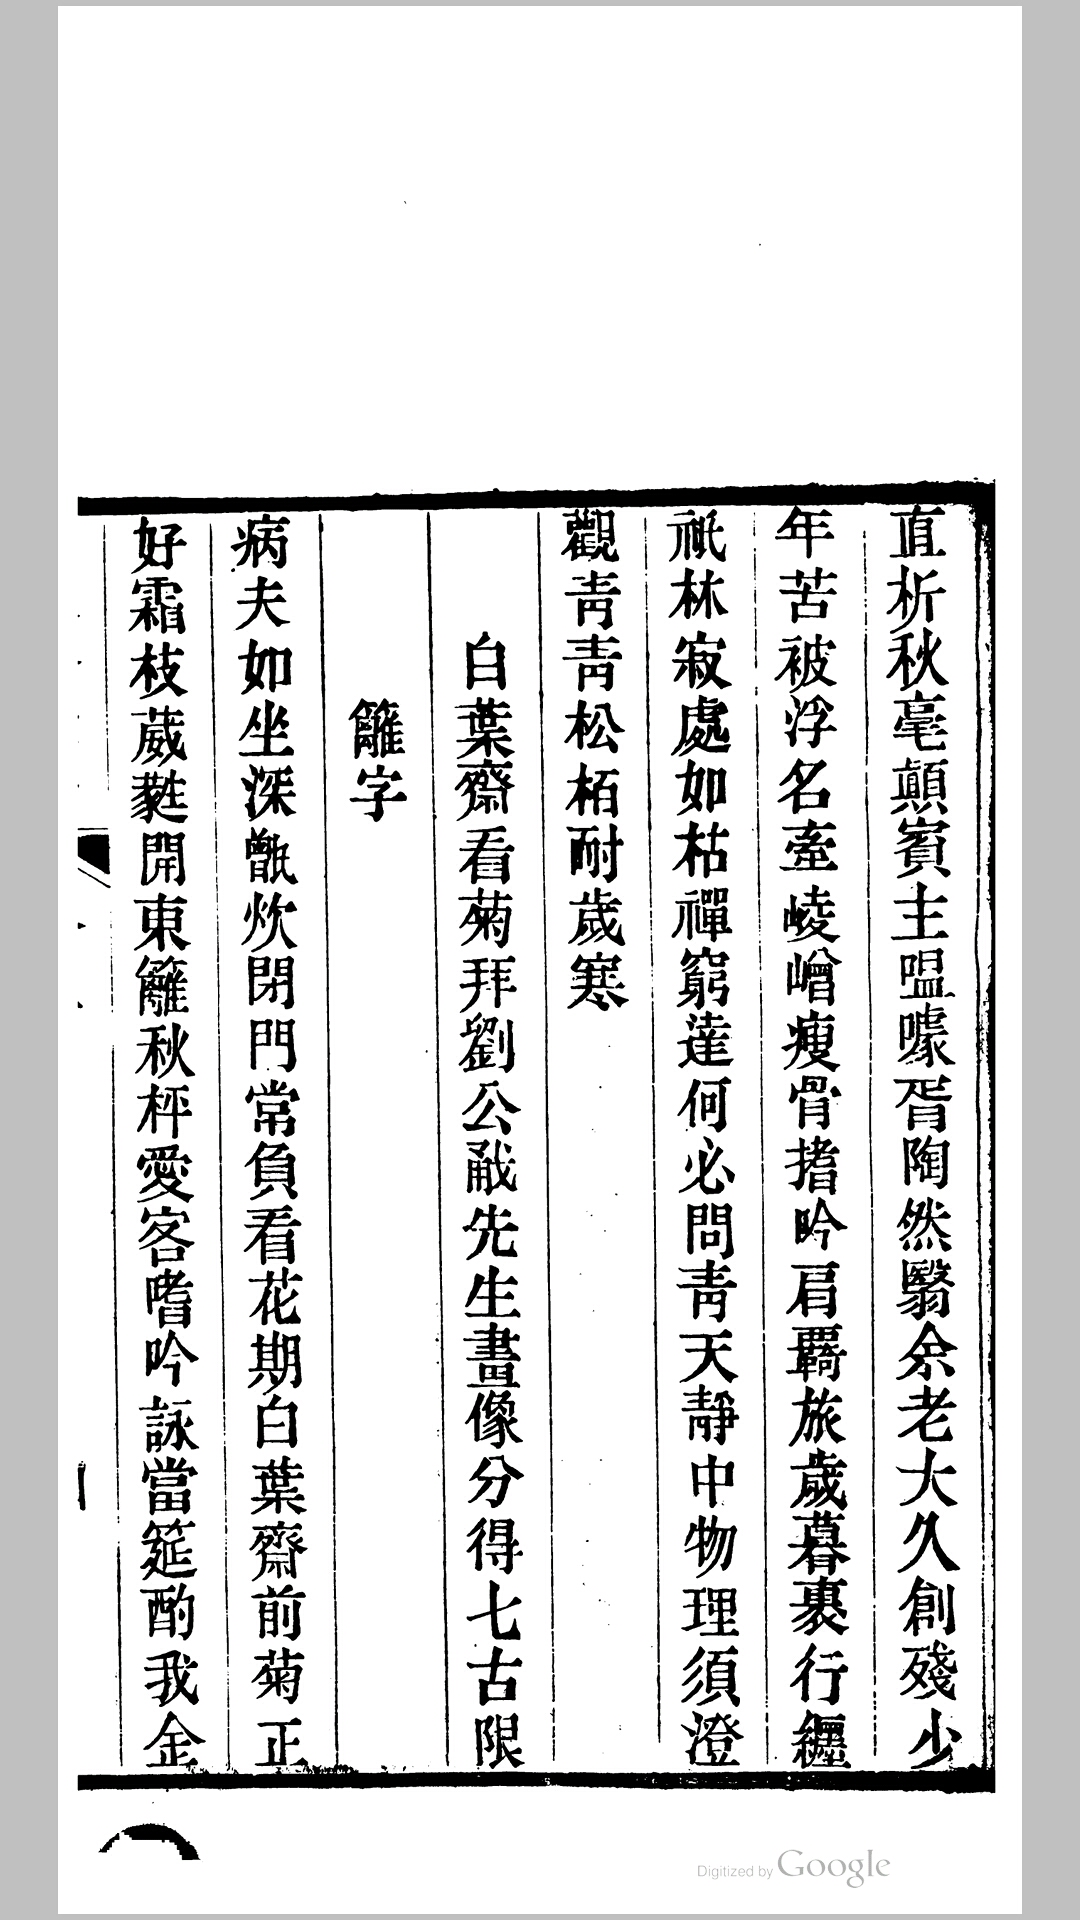 直析秋毫顛賓主嗢噱胥陶然翳余老大久創殘少
年苦被浮名牽崚嶒瘦骨搘吟肩羈旅歲暮裹行纏
祇林寂處如枯禪窮達何必問靑天靜中物理須澄
觀靑靑松栢耐歲寒
白葉齋看菊拜劉公㦸先生畫像分得七古限
籬字
病夫如坐深甑炊閉門常負看花期白葉齋前菊正
好霜枝葳蕤開東籬秋枰愛客嗜吟詠當筵酌我金
Digitized by Google